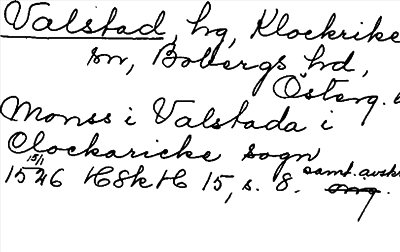 Valstad, hg, Klockrike
sn, Bobergs hd,
Österg.
Monss i Valstada i
Clockaricke sogn
15/1
1546 HSkH 15, s. 8. samt. avskr